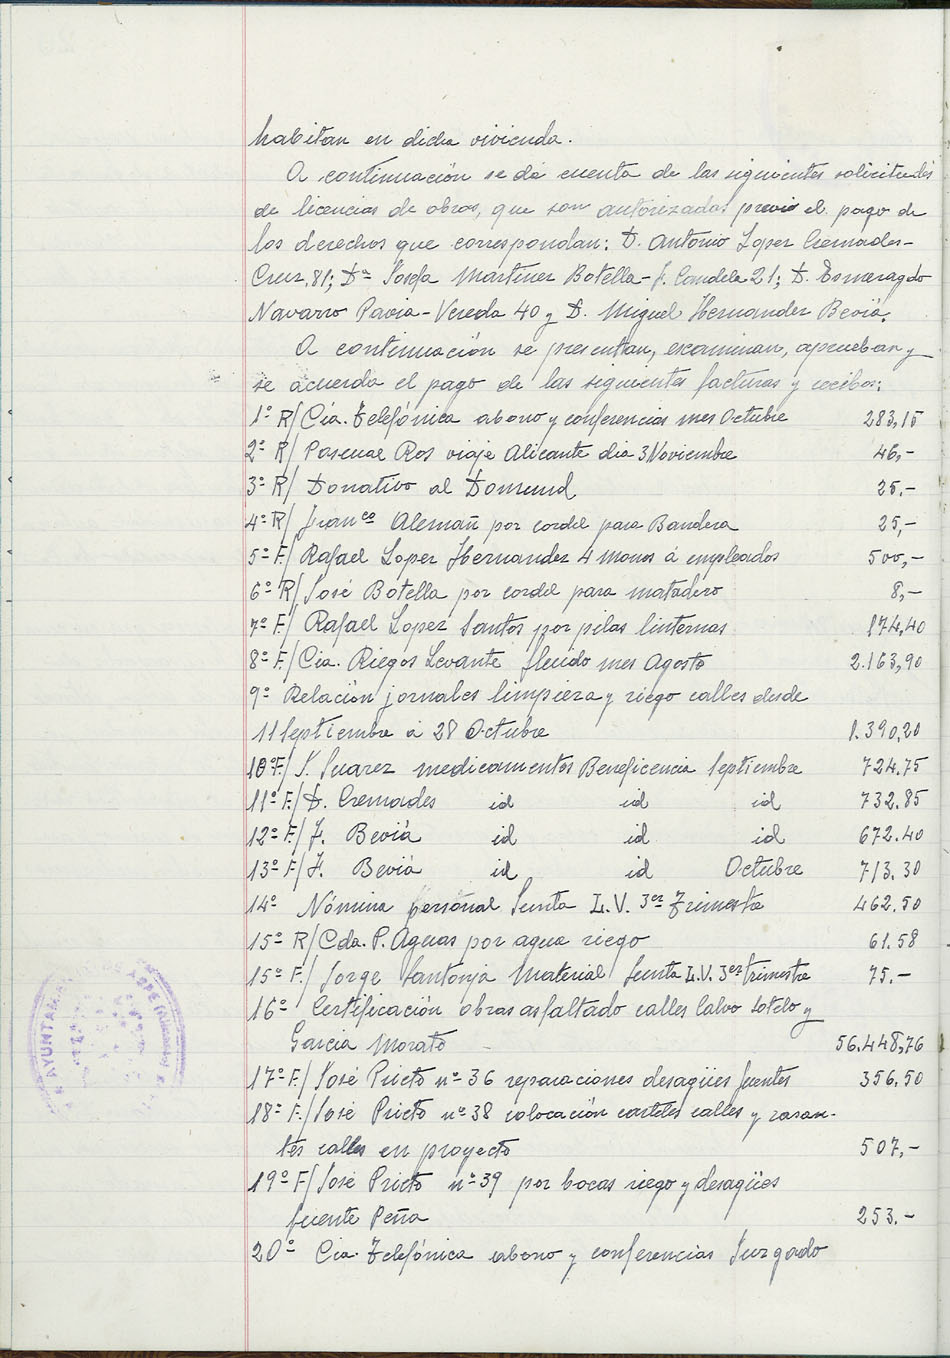 habitan en dicha vivienda.
A continuación se da cuenta de las siguientes solicitudes
de licencias de obras, que son autorizadas previo el pago de
los derechos que correspondan: D. Antonio Lopez Cremades-
Cruz, 81; Dª Josefa Martinez Botella - F. Candela 21; D. Esmeragdo
Navarro Pavia - Vereda 40 y D. Miguel Hernandez Beviá.
A continuación se presentan, examinan, aprueban y
se acuerda el pago de las siguientes facturas y recibos:
1º R/ Cía. Telefónica abono y conferencias mes Octubre 283,15
2º R/ Pascual Ros viaje Alicante dia 3 Noviembre 46,-
3º R/ Donativo al Domund 25.-
4º R/ Franco Alemañ por cordel para Bandera 25,-
5º F./ Rafael Lopez Hernandez 4 monos á empleados 500,-
6º R/ José Botella por cordel para matadero 8,-
7º F/ Rafael Lopez Santos por pilas linternas 174,40
8º F./ Cía. Riegos Levante fluido mes Agosto 2.163,90
9º Relación jornales limpieza y riego calles desde
11 Septiembre á 28 Octubre 1.390,20
10º F./ J. Suarez medicamentos Beneficencia Septiembre 724.75
11º F./ D. Cremades id id id 732.85
12º F/ J. Beviá id id id 672.40
13º F/ J. Beviá id id Octubre 713.30
14º Nómina personal Junta L.V. 3er Trimestre 462.50
15º R/ Cda. P. Aguas por agua riego 61.58
15º F./ Jorge Santonja Material Junta L.V. 3er trimestre 75.-
16º Certificación obras asfaltado calles Calvo Sotelo y
Garcia Morato 56.448,76
17º F./ José Prieto nº 36 reparaciones desagües fuentes 356.50
18º F./ José Prieto nº 38 colocación carteles calles y rasan-
tes calles en proyecto 507,-
19º F/ José Prieto nº 39 por bocas riego y desagües
fuente Peña 253.-
20º Cia. Telefónica abono y conferencias Juzgado
AYUNTAMIENTO DE ASPE